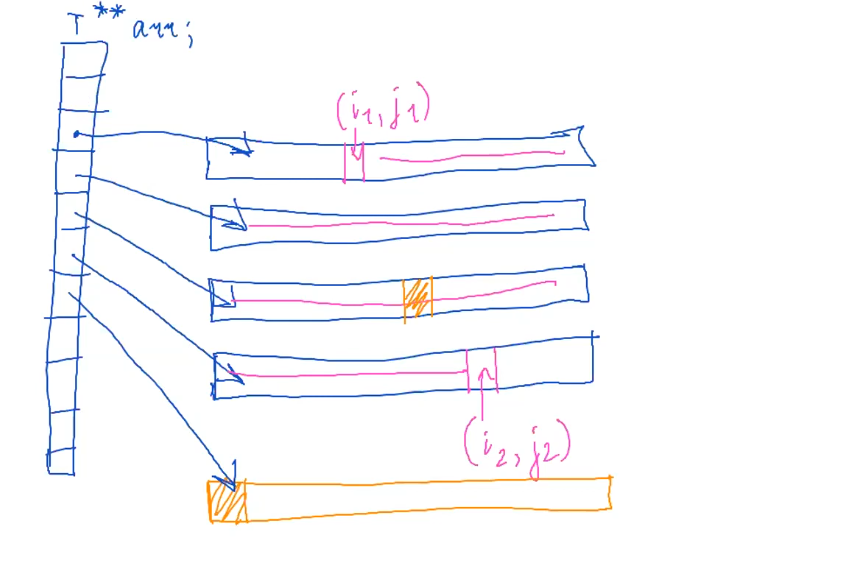 T** arr;
(i1, j1)
(i2, j2)